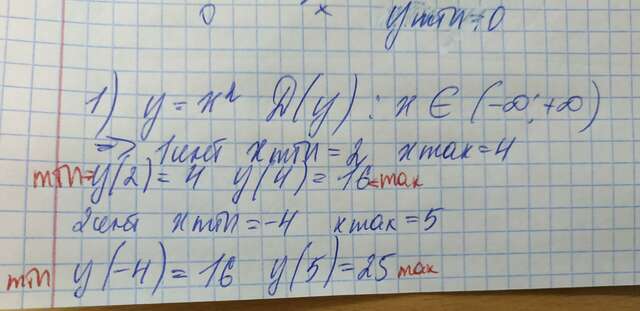 0 x y min = 0
1) y = x² D(y) : x ∈ (-∞; +∞)
=> 1 инт x min = 2 x max = 4
min = y(2) = 4 y(4) = 16 = max
2 инт x min = -4 x max = 5
min y(-4) = 16 y(5) = 25 max